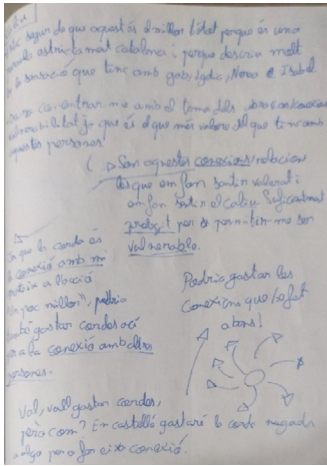 seguir de que aquest és millor l'títol perque és una
paraula estrictament catalana i perque descriu molt
be la sensació que tinc amb gab, Lydia, Nerea e Isabel.
centrar-me amb el tema dels
vulnerabilitat ja que és el que més valore del que tinc amb
aquestes persones!
Son aquestes conexions/relacions
les que em fan sentir valorat i
em fan sentir el caliu suficientment
protegit per a permitir-me ser
vulnerable.
Ja que la corda és
la conexió amb mi
mateix a l'acció
"Un poc millor", podria
també gastar cordes ací
per a la conexió amb altres
persones.
Podria gastar les
Conexions que he fet
abans!
Val, vull gastar cordes,
però com? En castelló gastaré la corda nugada
a algo per a fer eixa conexió.